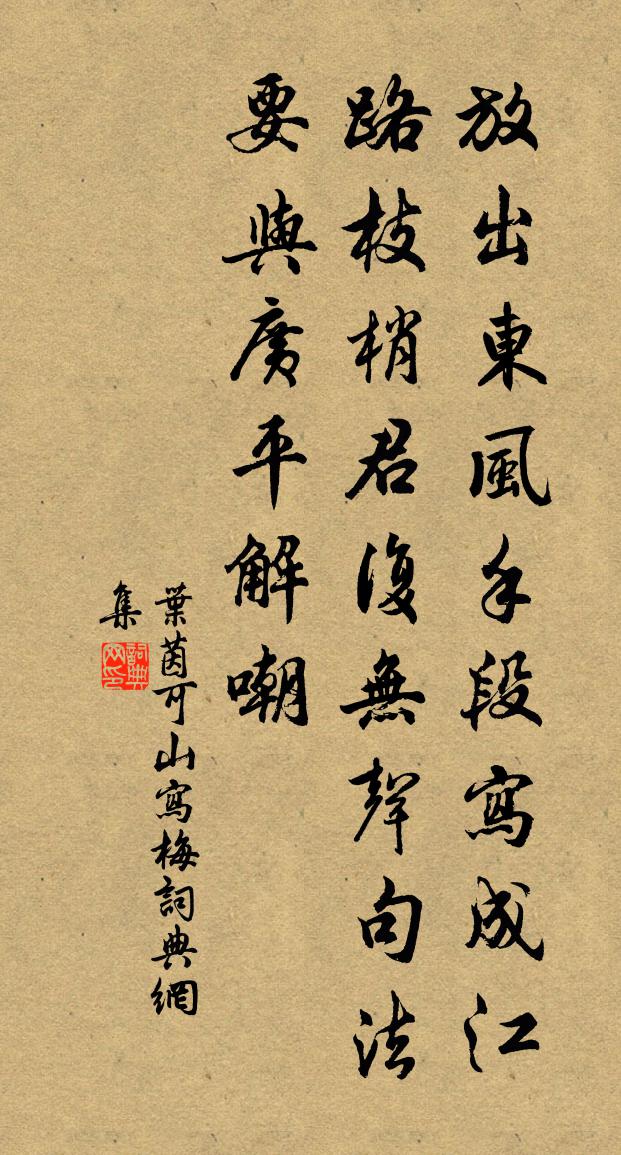 放出東風手段寫成江
路枝梢君復無聲句法
要與廣平解嘲
葉茵可山寫梅詞典網
集
詞典
网印